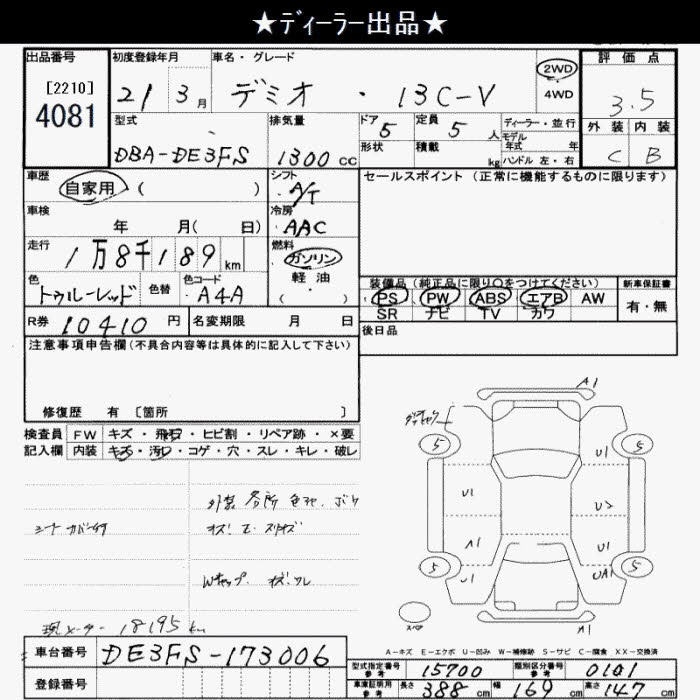 ★ディーラー出品★
出品番号
[2210]
4081
初度登録年月
21 3月
車名・グレード
デミオ ・ 13C-V
2WD
4WD
評価点
3.5
外装 内装
C B
型式
DBA-DE3FS
排気量
1300cc
ドア
5
定員
5人
形状
積載
kg
ディーラー・並行
モデル
年式 年
ハンドル 左・右
車歴
自家用 ( )
シフト
A/T
セールスポイント (正常に機能するものに限ります)
車検
年 月( 日)
冷房
AAC
走行
1万8千189km
燃料
ガソリン
軽油
( )
色
トゥルーレッド
色替
色コード
A4A
装備品 (純正品に限り○をつけてください)
PS PW ABS エアB AW
SR ナビ TV カワ
新車保証書
有・無
R券 10410円
名変期限 月 日
後日品
注意事項申告欄(不具合内容等は具体的に記入して下さい)
修復歴 有 [箇所 ]
検査員 FW キズ・飛石・ヒビ割・リペア跡・×要
記入欄 内装 キズ・汚れ・コゲ・穴・スレ・キレ・破レ
外装 各所 色セ、ボケ
シートカバー付
キズ、E、スリキズ
Wキャップ キズ、ワレ
現メーター 18195km
A1
5
5
U1
U1
U2
A1
U1
5
U1
UA1
5
スペア
A1
A-キズ E-エクボ U-凹み W-補修跡 S-サビ C-腐食 XX-交換済
車台番号 DE3FS-173006
登録番号
型式指定番号 参考 15700
類別区分番号 参考 0101
車庫証明用 参考 長さ 388cm 幅 169cm 高さ 147cm